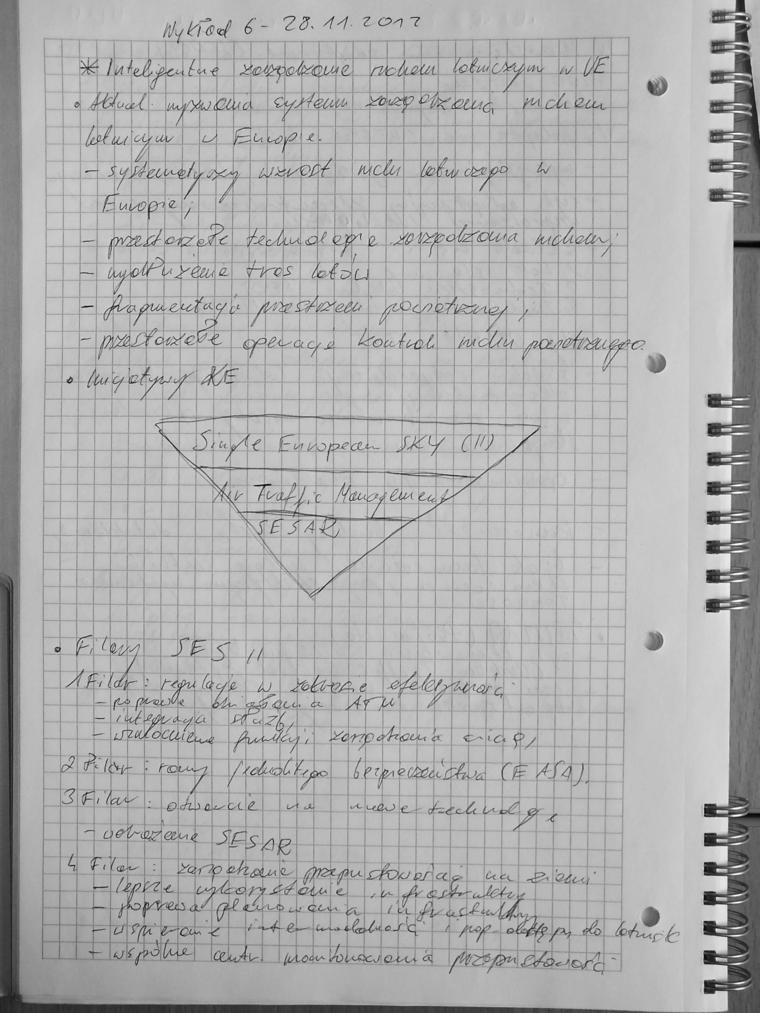 Wykład 6 - 28.11.2012
* Inteligentne zarządzanie ruchem lotniczym w UE
• Aktual. wyzwania systemu zarządzania ruchem
lotniczym w Europie.
- systematyczny wzrost ruchu lotniczego w
Europie;
- przestarzałe technologie zarządzania ruchem;
- wydłużenie tras lotów
- fragmentacja przestrzeni powietrznej;
- przestarzałe operacje kontroli ruchu powietrznego.
• Inicjatywy KE
Single European SKY (II)
Air Traffic Management
SESAR
• Filary SES II
1 Filar: regulacje w zakresie efektywności
- poprawa działania ATM
- integracja służb,
- wzmocnienie funkcji zarządzania siecią,
2 Filar: ramy jednolitego bezpieczeństwa (EASA).
3 Filar: otwarcie na nowe technologie,
- wdrażanie SESAR
4 Filar: zarządzanie przepustowością na ziemi
- lepsze wykorzystanie infrastruktury
- poprawa planowania infrastruktury
- wspieranie intermodalności i pop. dostępu do lotnisk
- wspólne centr. monitorowania przepustowości